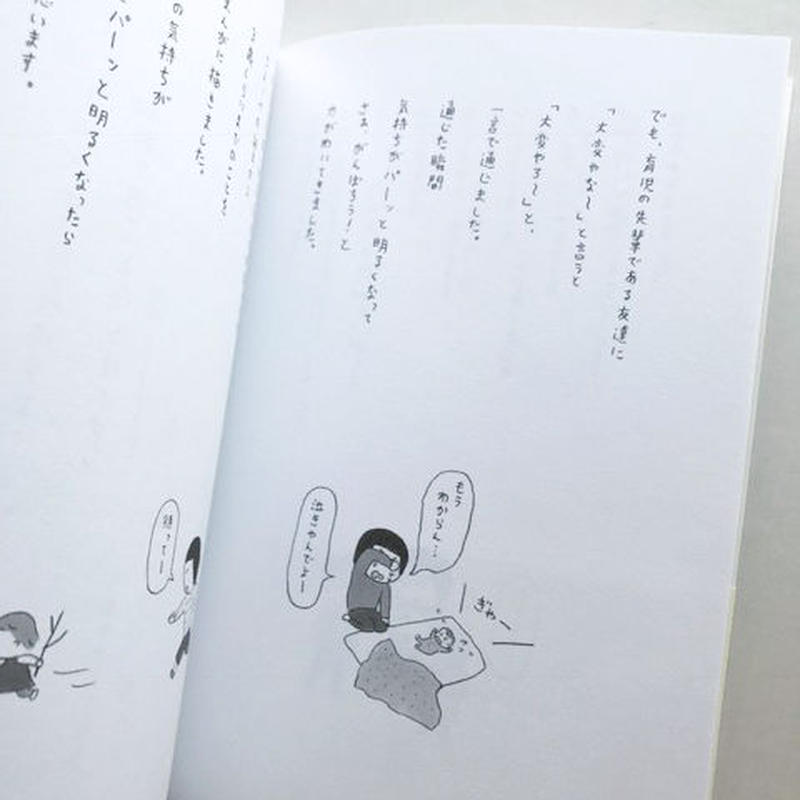 でも、育児の先輩である友達に
「大変やな〜」と言うと
「大変やろ〜」と、
一言で通じました。
通じた瞬間
気持ちがパーッと明るくなって
さあ、がんばろう!と
力がわいてきました。
もう
わからん…
泣きやんでよー
ぎゃー
まんがに描きました。
の気持ちが
パーンと明るくなったら
思います。
待ってー